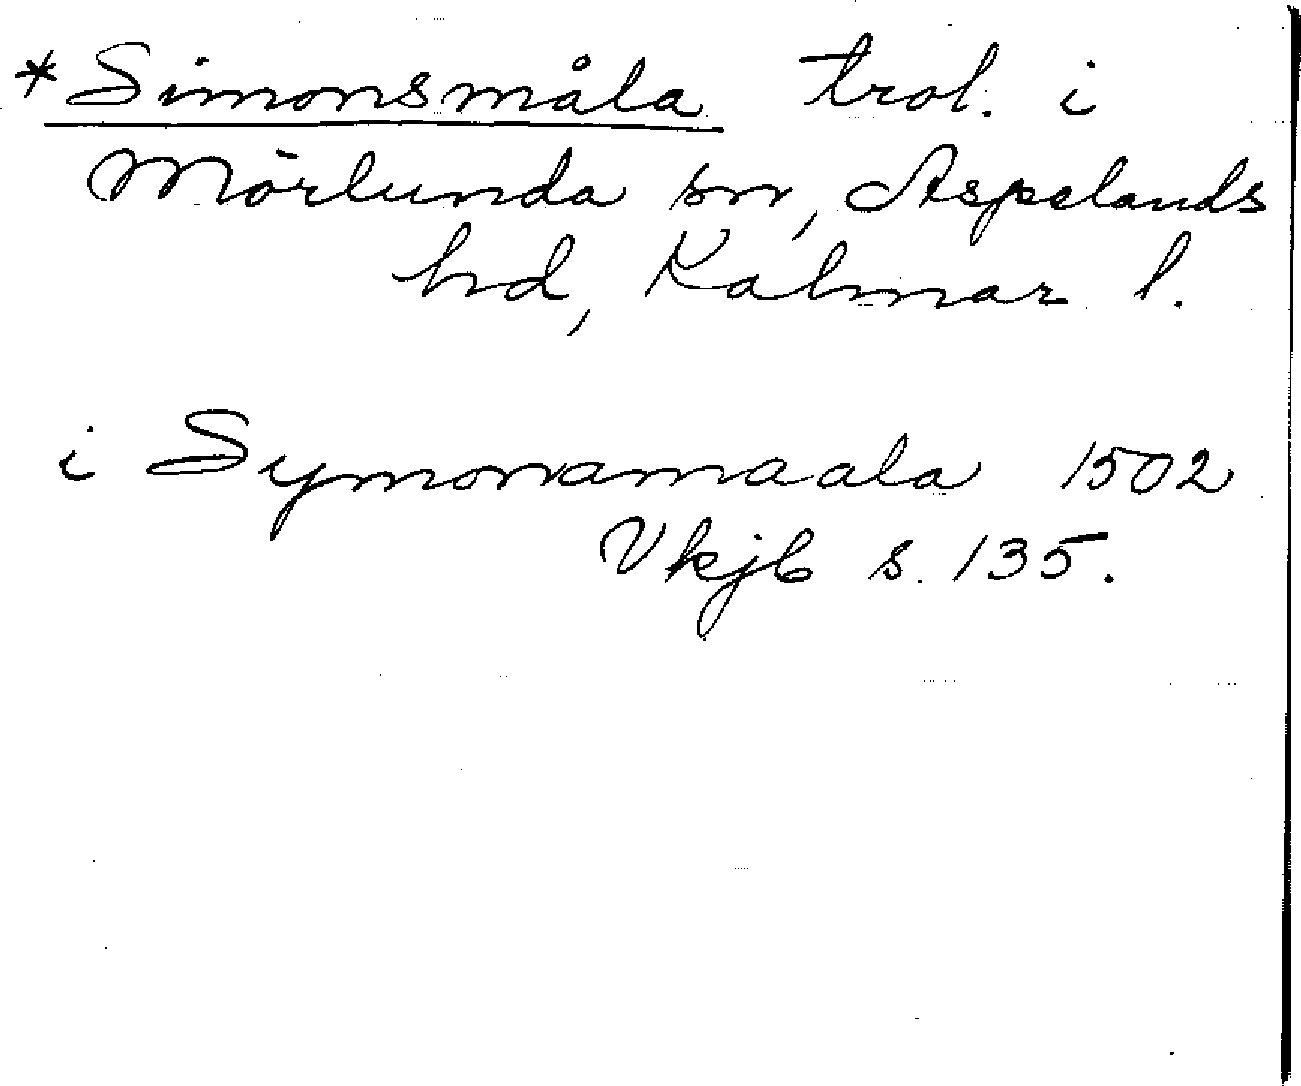 *Simonsmåla trol. i
Mörlunda sn, Aspelands
hd, Kalmar l.
i Symonamaala 1502
Vkjb s. 135.